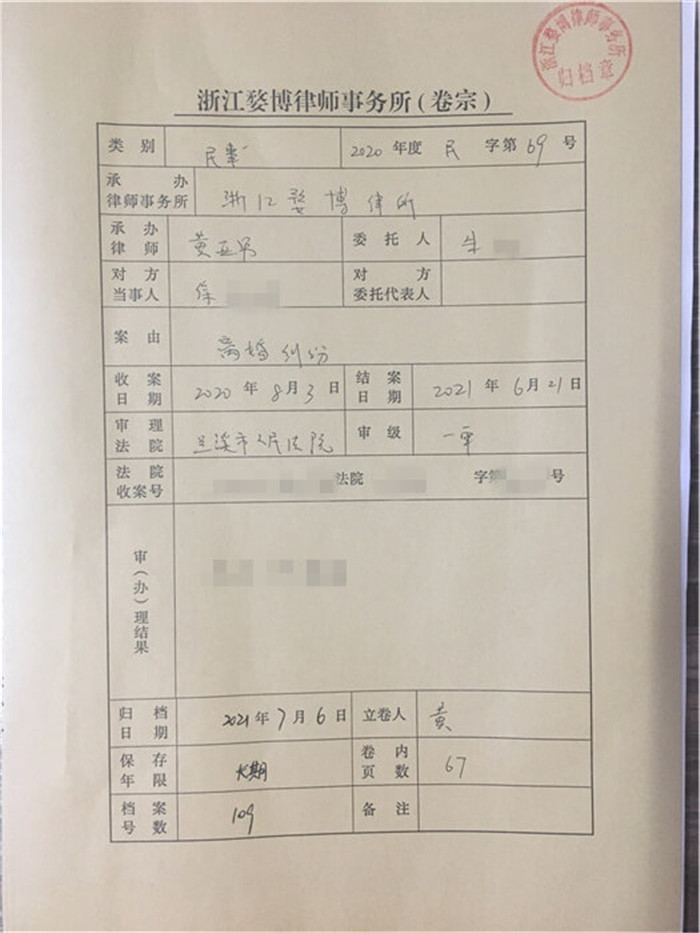 浙江婺博律师事务所
归档章
浙江婺博律师事务所（卷宗）
类别 民事 2020 年度 民 字第 69 号
承办律师事务所 浙江婺博律所
承办律师 黄亚男 委托人 朱
对方当事人 徐 对方委托代表人
案由 离婚纠纷
收案日期 2020 年 8月 3 日 结案日期 2021 年 6月 21 日
审理法院 兰溪市人民法院 审级 一审
法院收案号 法院 字第 号
审（办）理结果
归档日期 2021 年 7 月 6 日 立卷人 黄
保存年限 长期 卷内页数 67
档案号数 109 备注